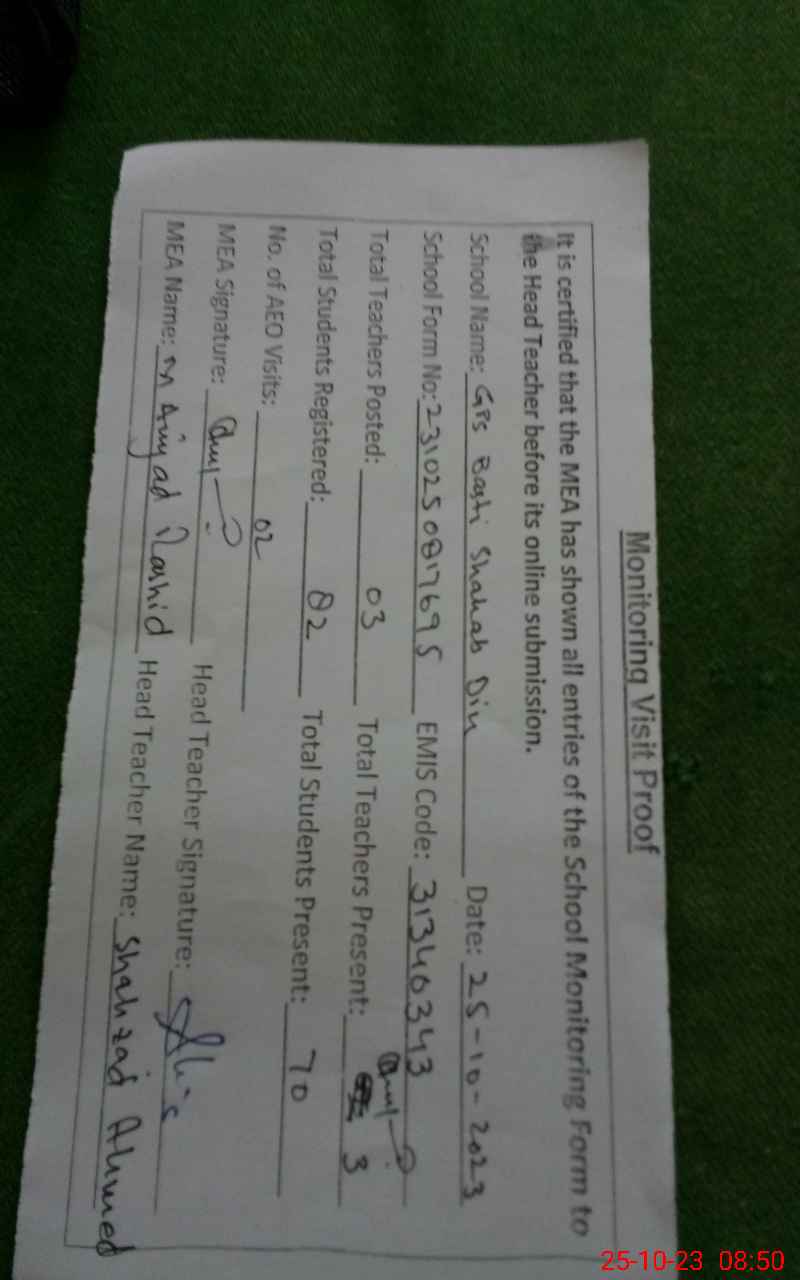 Monitoring Visit Proof
It is certified that the MEA has shown all entries of the School Monitoring Form to
the Head Teacher before its online submission.
School Name: GPS Basti Shahab Din Date: 25-10-2023
School Form No: 231025087695 EMIS Code: 31340343
Total Teachers Posted: 03 Total Teachers Present: 3
Total Students Registered: 82 Total Students Present: 70
No. of AEO Visits: 02
MEA Signature: Head Teacher Signature:
MEA Name: M Amjad Rashid Head Teacher Name: Shahzad Ahmed
25-10-23 08:50